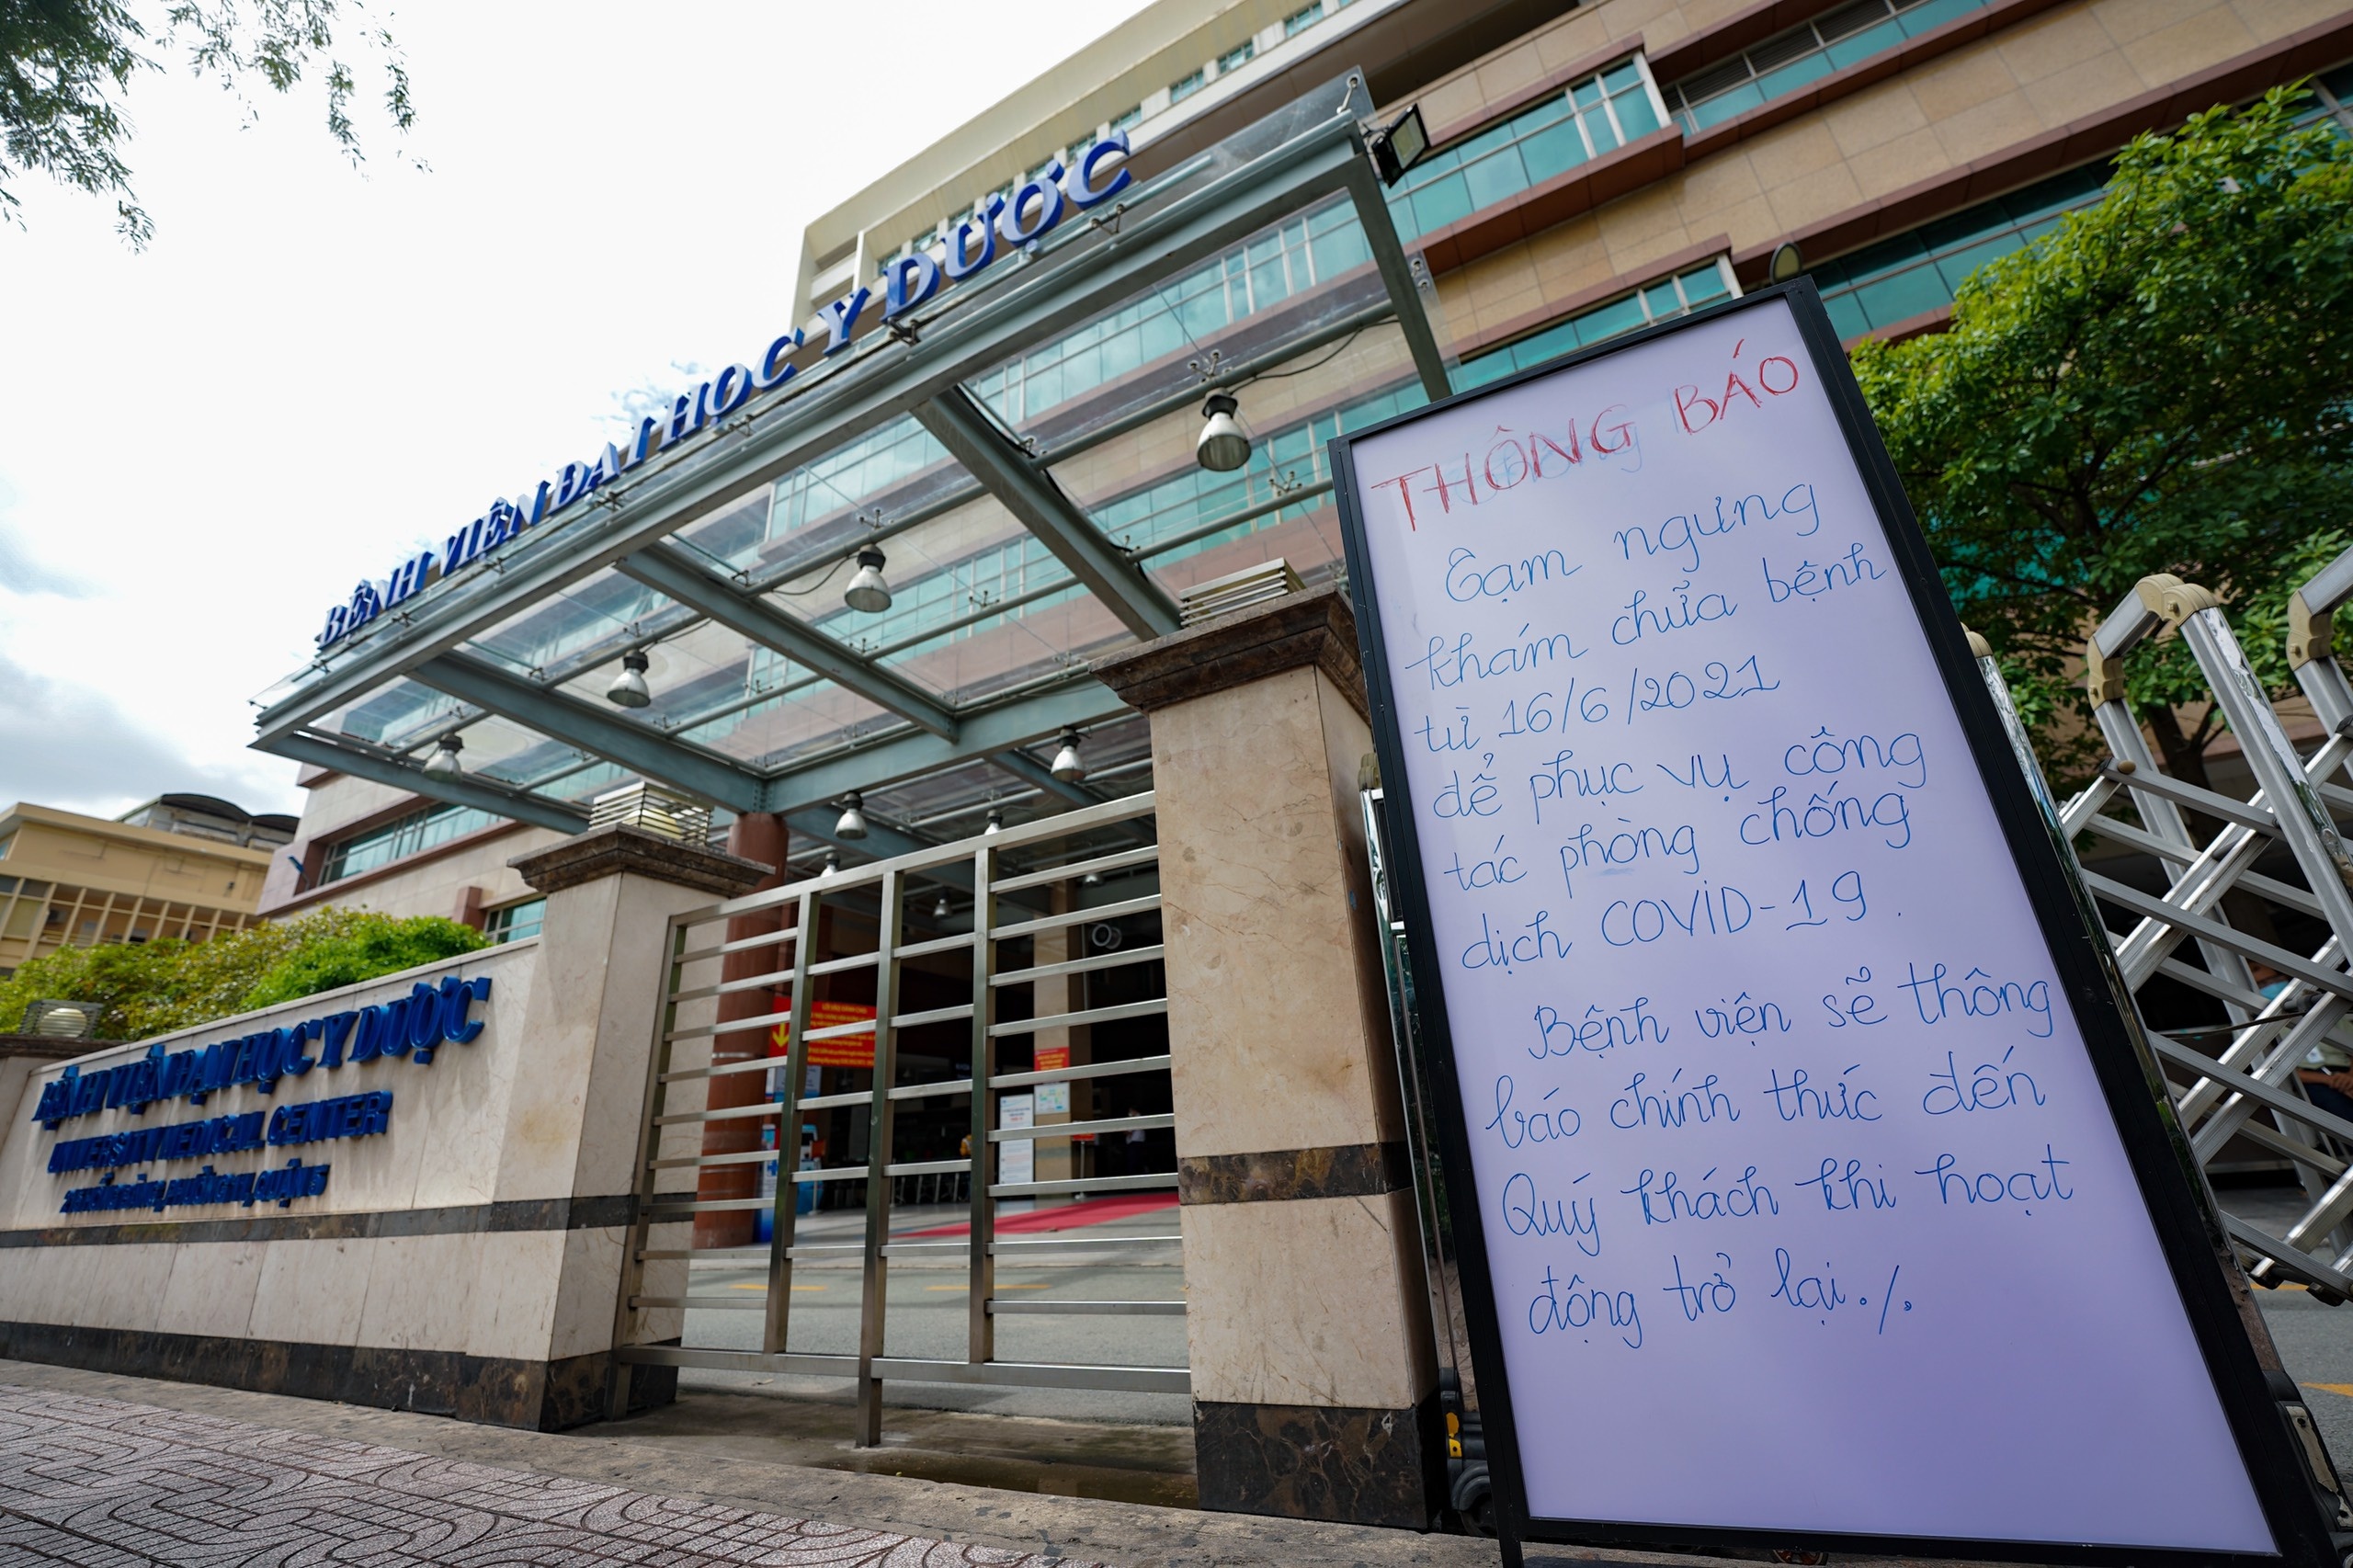 BỆNH VIỆN ĐẠI HỌC Y DƯỢC
BỆNH VIỆN ĐẠI HỌC Y DƯỢC
UNIVERSITY MEDICAL CENTER
THÔNG BÁO
Tạm ngưng
khám chữa bệnh
từ 16/6/2021
để phục vụ công
tác phòng chống
dịch COVID-19.
Bệnh viện sẽ thông
báo chính thức đến
Quý khách khi hoạt
động trở lại./.